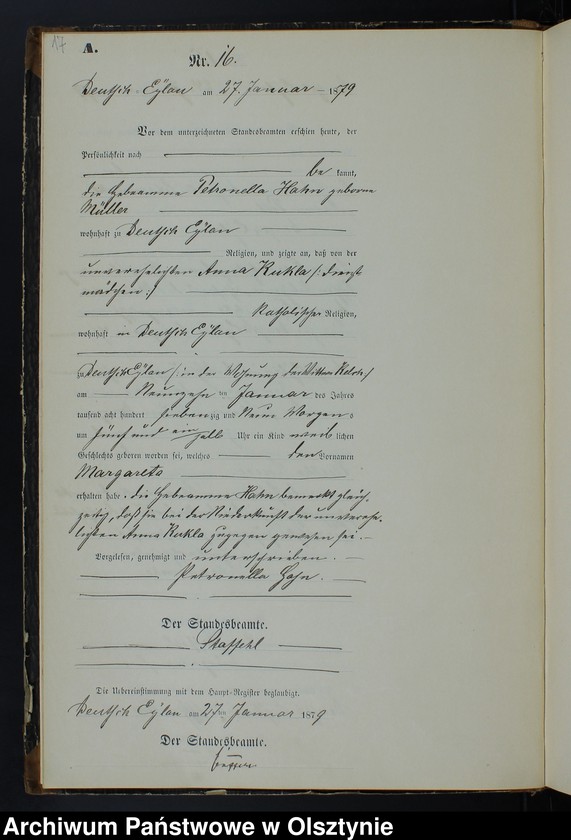 17
A.
Nr. 16.
Deutsch-Eylau am 27. Januar 1879
Vor dem unterzeichneten Standesbeamten erschien heute, der
Persönlichkeit nach
be kannt,
die Hebeamme Petronella Hahn geborne
Müller
wohnhaft zu Deutsch Eylau
Religion, und zeigte an, daß von der
unverehelichten Anna Kukla /: Dienst
mädchen :/
Katholischer Religion,
wohnhaft in Deutsch Eylau
zu Deutsch Eylau /: in der Wohnung der Wittwe :/
am Neunzehn ten Januar des Jahres
tausend acht hundert siebenzig und Neun Morgens
um fünf und ein halb Uhr ein Kind weib lichen
Geschlechts geboren worden sei, welches den Vornamen
Margareta
erhalten habe. die Hebeamme Hahn bemerkt gleich-
zeitig, daß sie bei der Niederkunft der unverehe-
lichten Anna Kukla zugegen gewesen sei.
Vorgelesen, genehmigt und unterschrieben.
Petronella Hahn.
Der Standesbeamte.
Die Uebereinstimmung mit dem Haupt-Register beglaubigt.
Deutsch Eylau am 27ten Januar 1879
Der Standesbeamte.
Archiwum Państwowe w Olsztynie